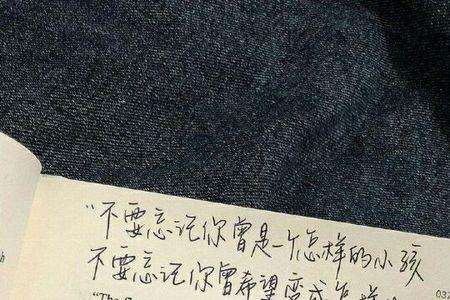 "不要忘记你曾是一个怎样的小孩
不要忘记你曾希望变成怎样
"The
h
037